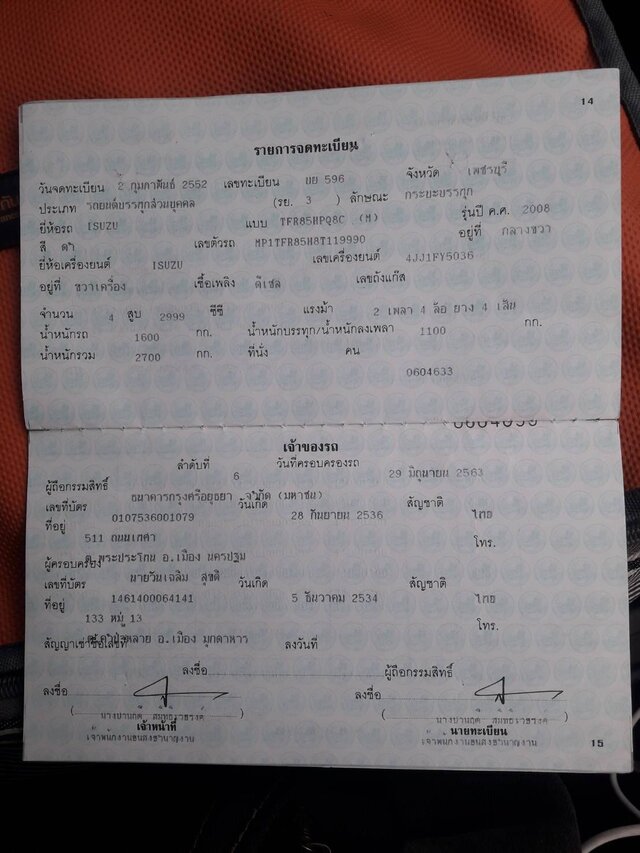 14
รายการจดทะเบียน
วันจดทะเบียน 2 กุมภาพันธ์ 2552 เลขทะเบียน บย 596 จังหวัด เพชรบุรี
ประเภท รถยนต์บรรทุกส่วนบุคคล (รย. 3 ) ลักษณะ กระบะบรรทุก
ยี่ห้อรถ ISUZU แบบ TFR85HPQ8C (M) รุ่นปี ค.ศ. 2008
สี ดำ เลขตัวรถ MP1TFR85H8T119990 อยู่ที่ กลางขวา
ยี่ห้อเครื่องยนต์ ISUZU เลขเครื่องยนต์ 4JJ1FY5036
อยู่ที่ ขวาเครื่อง เชื้อเพลิง ดีเซล เลขถังแก๊ส
จำนวน 4 สูบ 2999 ซีซี แรงม้า 2 เพลา 4 ล้อ ยาง 4 เส้น
น้ำหนักรถ 1600 กก. น้ำหนักบรรทุก/น้ำหนักลงเพลา 1100 กก.
น้ำหนักรวม 2700 กก. ที่นั่ง คน
0604633
เจ้าของรถ
ลำดับที่ 6 วันที่ครอบครองรถ 29 มิถุนายน 2563
ผู้ถือกรรมสิทธิ์ ธนาคารกรุงศรีอยุธยา จำกัด (มหาชน)
เลขที่บัตร 0107536001079 วันเกิด 28 กันยายน 2536 สัญชาติ ไทย
ที่อยู่ 511 ถนนเทศา โทร.
ต.พระประโทน อ.เมือง นครปฐม
ผู้ครอบครอง นายวันเฉลิม สุขดี
เลขที่บัตร 1461400064141 วันเกิด 5 ธันวาคม 2534 สัญชาติ ไทย
ที่อยู่ 133 หมู่ 13 โทร.
อ.เมือง มุกดาหาร
สัญญาเช่าซื้อเลขที่ ลงวันที่
ลงชื่อ ผู้ถือกรรมสิทธิ์
ลงชื่อ ลงชื่อ
เจ้าหน้าที่ นายทะเบียน
เจ้าพนักงานขนส่งชำนาญงาน เจ้าพนักงานขนส่งชำนาญงาน
15